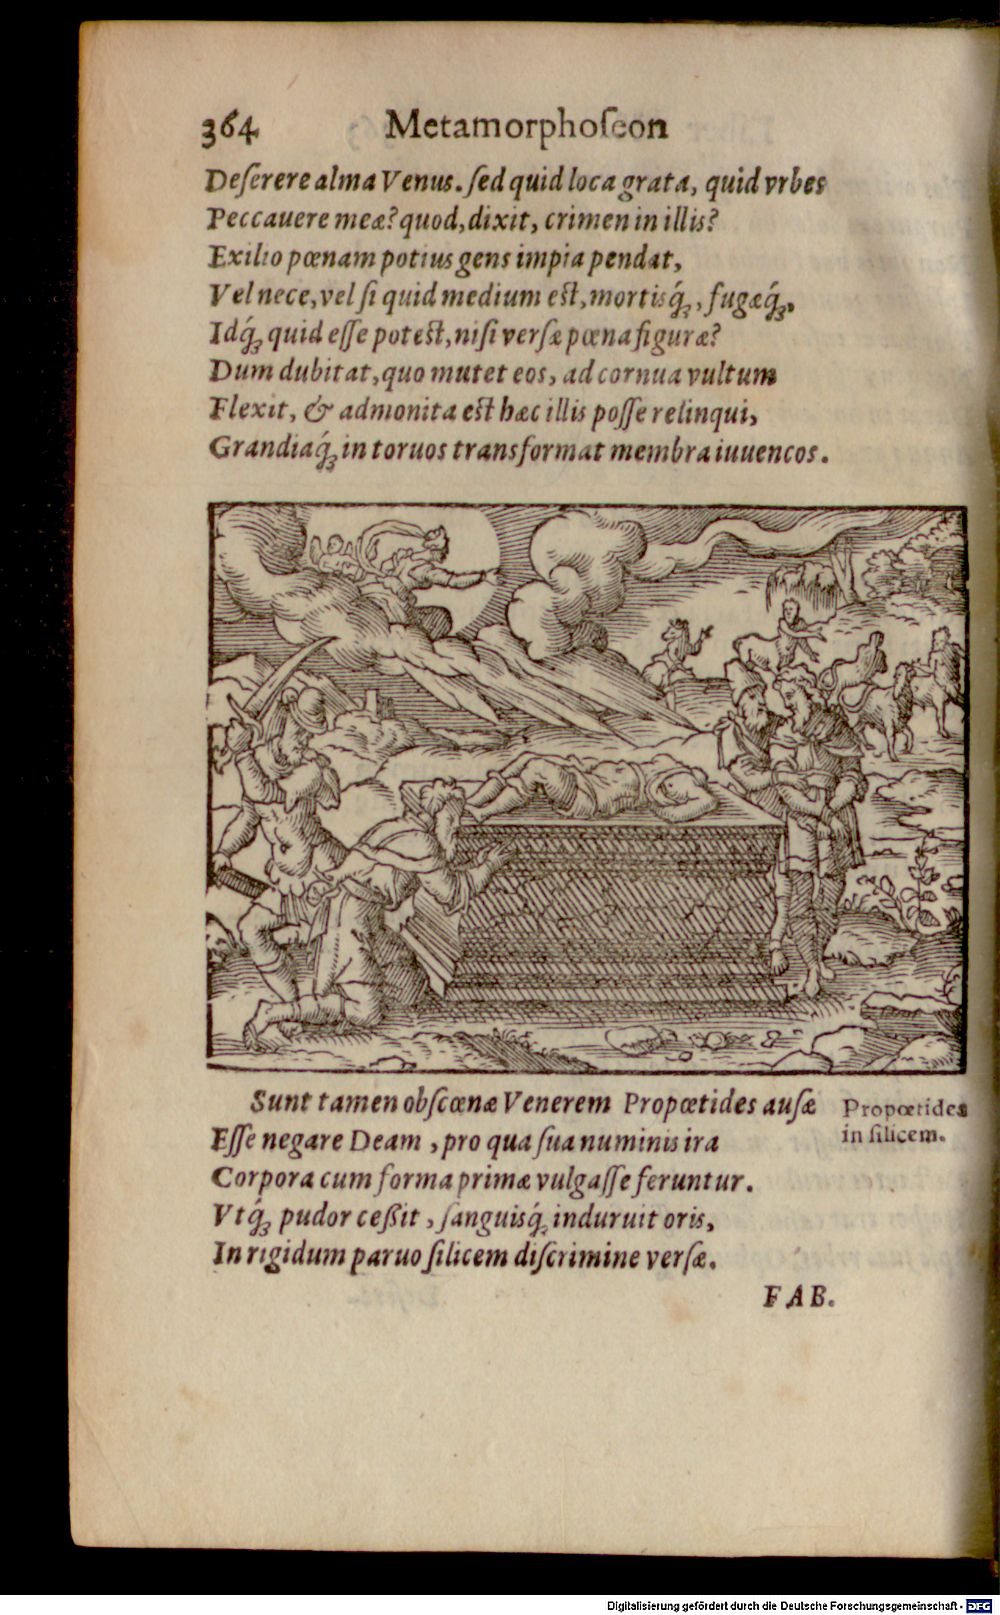 364 Metamorphoſeon
Deſerere alma Venus. ſed quid loca grata, quid vrbes
Peccauere meæ? quod, dixit, crimen in illis?
Exilio pœnam potius gens impia pendat,
Vel nece, vel ſi quid medium eſt, mortisq́;, fugæq́;.
Idq́; quid eſſe poteſt, niſi verſæ pœna figuræ?
Dum dubitat, quo mutet eos, ad cornua vultum
Flexit, & admonita eſt hæc illis poſſe relinqui,
Grandiaq́; in toruos transformat membra iuuencos.
Sunt tamen obſcœnæ Venerem Propœtides auſæ
Propœtides
in ſilicem.
Eſſe negare Deam, pro qua ſua numinis ira
Corpora cum forma primæ vulgaſſe feruntur.
Vtq́; pudor ceßit, ſanguisq́; induruit oris,
In rigidum paruo ſilicem diſcrimine verſæ.
FAB.
Digitalisierung gefördert durch die Deutsche Forschungsgemeinschaft - DFG